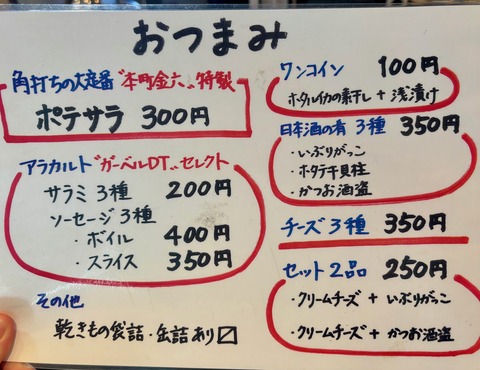 おつまみ
角打ちの大定番"本町金六"特製
ポテサラ 300円
アラカルト"ガーベルDT"セレクト
サラミ3種 200円
ソーセージ3種
・ボイル 400円
・スライス 350円
その他
乾きもの袋詰・缶詰あり〼
ワンコイン 100円
ホタルイカの素干し + 浅漬け
日本酒の肴 3種 350円
・いぶりがっこ
・ホタテ干貝柱
・かつお酒盗
チーズ3種 350円
セット2品 250円
・クリームチーズ + いぶりがっこ
・クリームチーズ + かつお酒盗